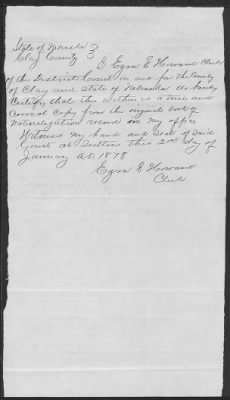 State of Nebraska }
Clay County }
I Ezra E Howard Clerk
of the District Court in and for the County
of Clay and State of Nebraska do hereby
Certify that the within is a true and
Correct Copy from the original book of
Naturalization record in my office
Witness my hand and Seal of Said
Court at Sutton this 2nd day of
January AD. 1878
Ezra E Howard
Clerk